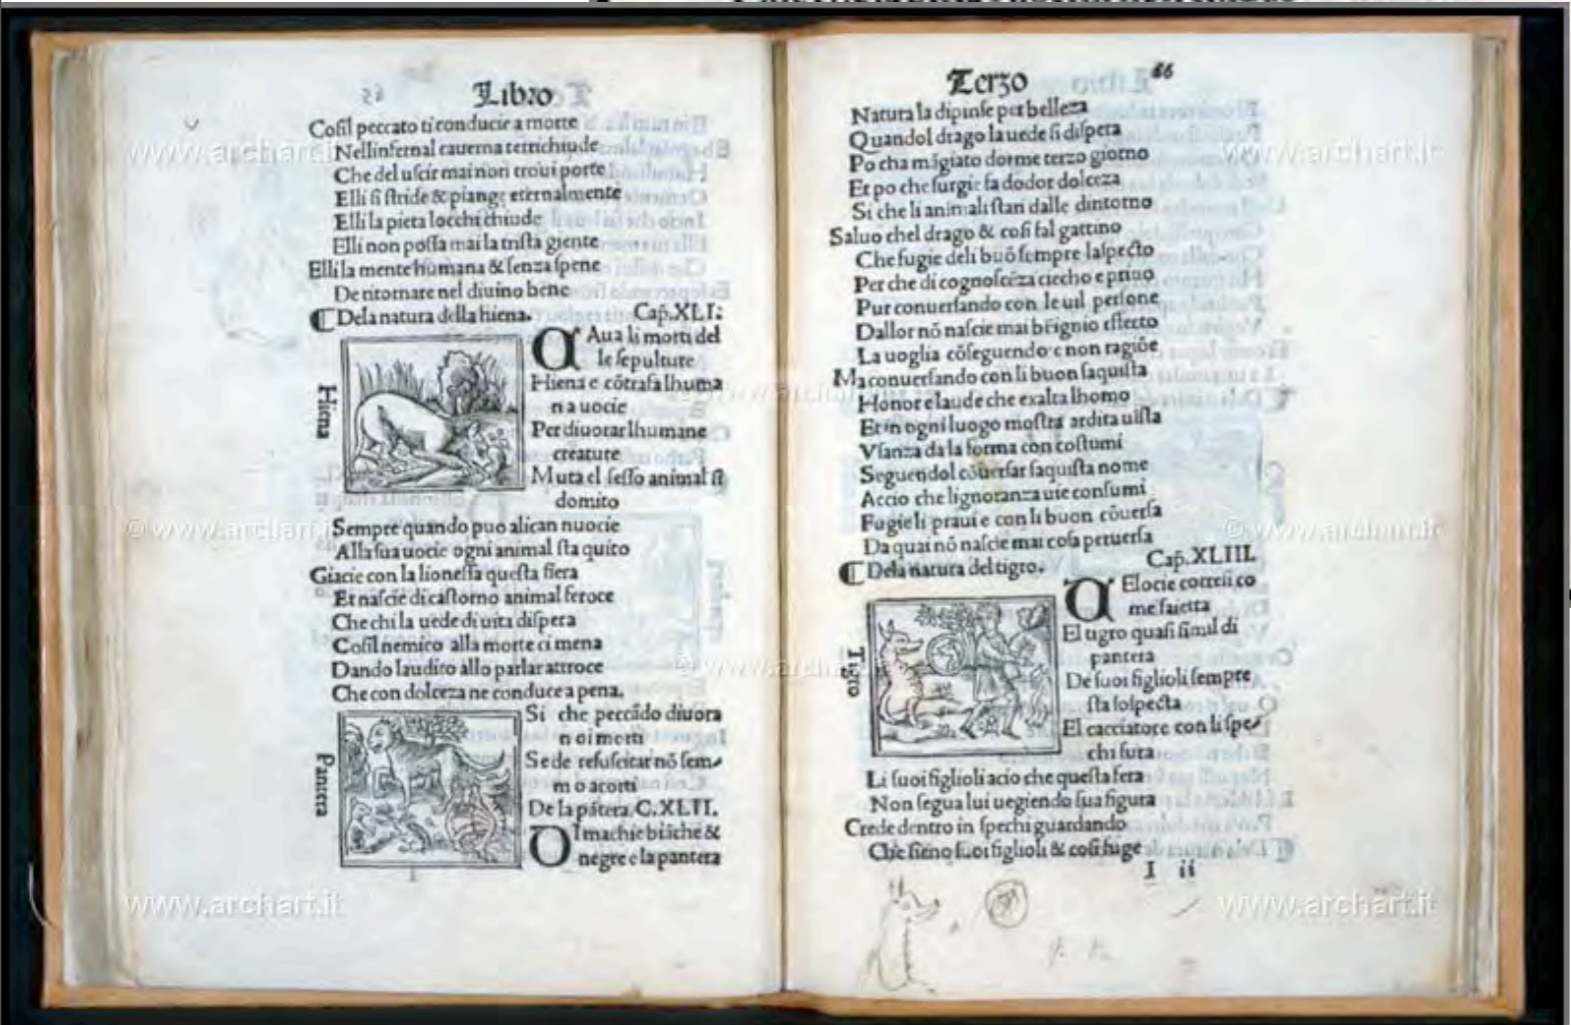 Libro
Cosil peccato ti conducie a morte
Nellinfernal cauerna terrichiude
Che del uscir mai non troui porte
Elli si stride & piange eternalmente
Elli la pieta locchi chiude
Elli non possa mai la trista giente
Elli la mente humana & senza spene
De ritornare nel diuino bene
Dela natura della hiena. Cap. XLI:
Hiena
CAua li morti del
le sepulture
Hiena e cōtrafa lhuma
na uocie
Per diuorar lhumane
creature
Muta el sesso animal si
domito
Sempre quando puo alican nuocie
Alla sua uocie ogni animal sta quito
Giacie con la lionessa questa fiera
Et nascie di castorno animal feroce
Che chi la uede di uita dispera
Cosil nemico alla morte ci mena
Dando laudito allo parlar attroce
Che con dolceza ne conduce a pena.
Pantera
Si che peccādo diuora
noi morti
Se de resuscitar nō sem-
mo acorti
De la pātera. C. XLII.
DI machie biāche &
negre e la pantera
Terzo
66
Natura la dipinse per belleza
Quandol drago la uede si dispera
Po cha māgiato dorme terzo giorno
Et po che surgie fa dodor dolceza
Si che li animali stan dalle dintorno
Saluo chel drago & cosi fal gattino
Che fugie deli buō sempre laspecto
Per che di cognoscēza ciecho e priuo
Pur conuersando con le uil persone
Dallor nō nascie mai benignio effecto
La uoglia cōseguendo e non ragiōe
Ma conuersando con li buon saquista
Honor e laude che exalta lhomo
Et in ogni luogo mostra ardita uista
Vsanza da la forma con costumi
Seguendol cōuersar saquista nome
Accio che lignoranza uie consumi
Fugie li praui e con li buon cōuersa
Da quai nō nascie mai cosa peruersa
Dela natura del tigro. Cap. XLIII.
Tigro
VElocie corre si co
me saietta
El tigro quasi simil di
pantera
De suoi figlioli sempre
sta sospecta
El cacciatore con li spe-
chi fura
Li suoi figlioli acio che questa fera
Non segua lui uegiendo sua figura
Crede dentro in spechi guardando
Che sieno suoi figlioli & cosi fuge
I ii
www.archart.it
www.archart.it
© www.archart.it
© www.archart.it
© www.archart.it
© www.archart.it
www.archart.it
www.archart.it